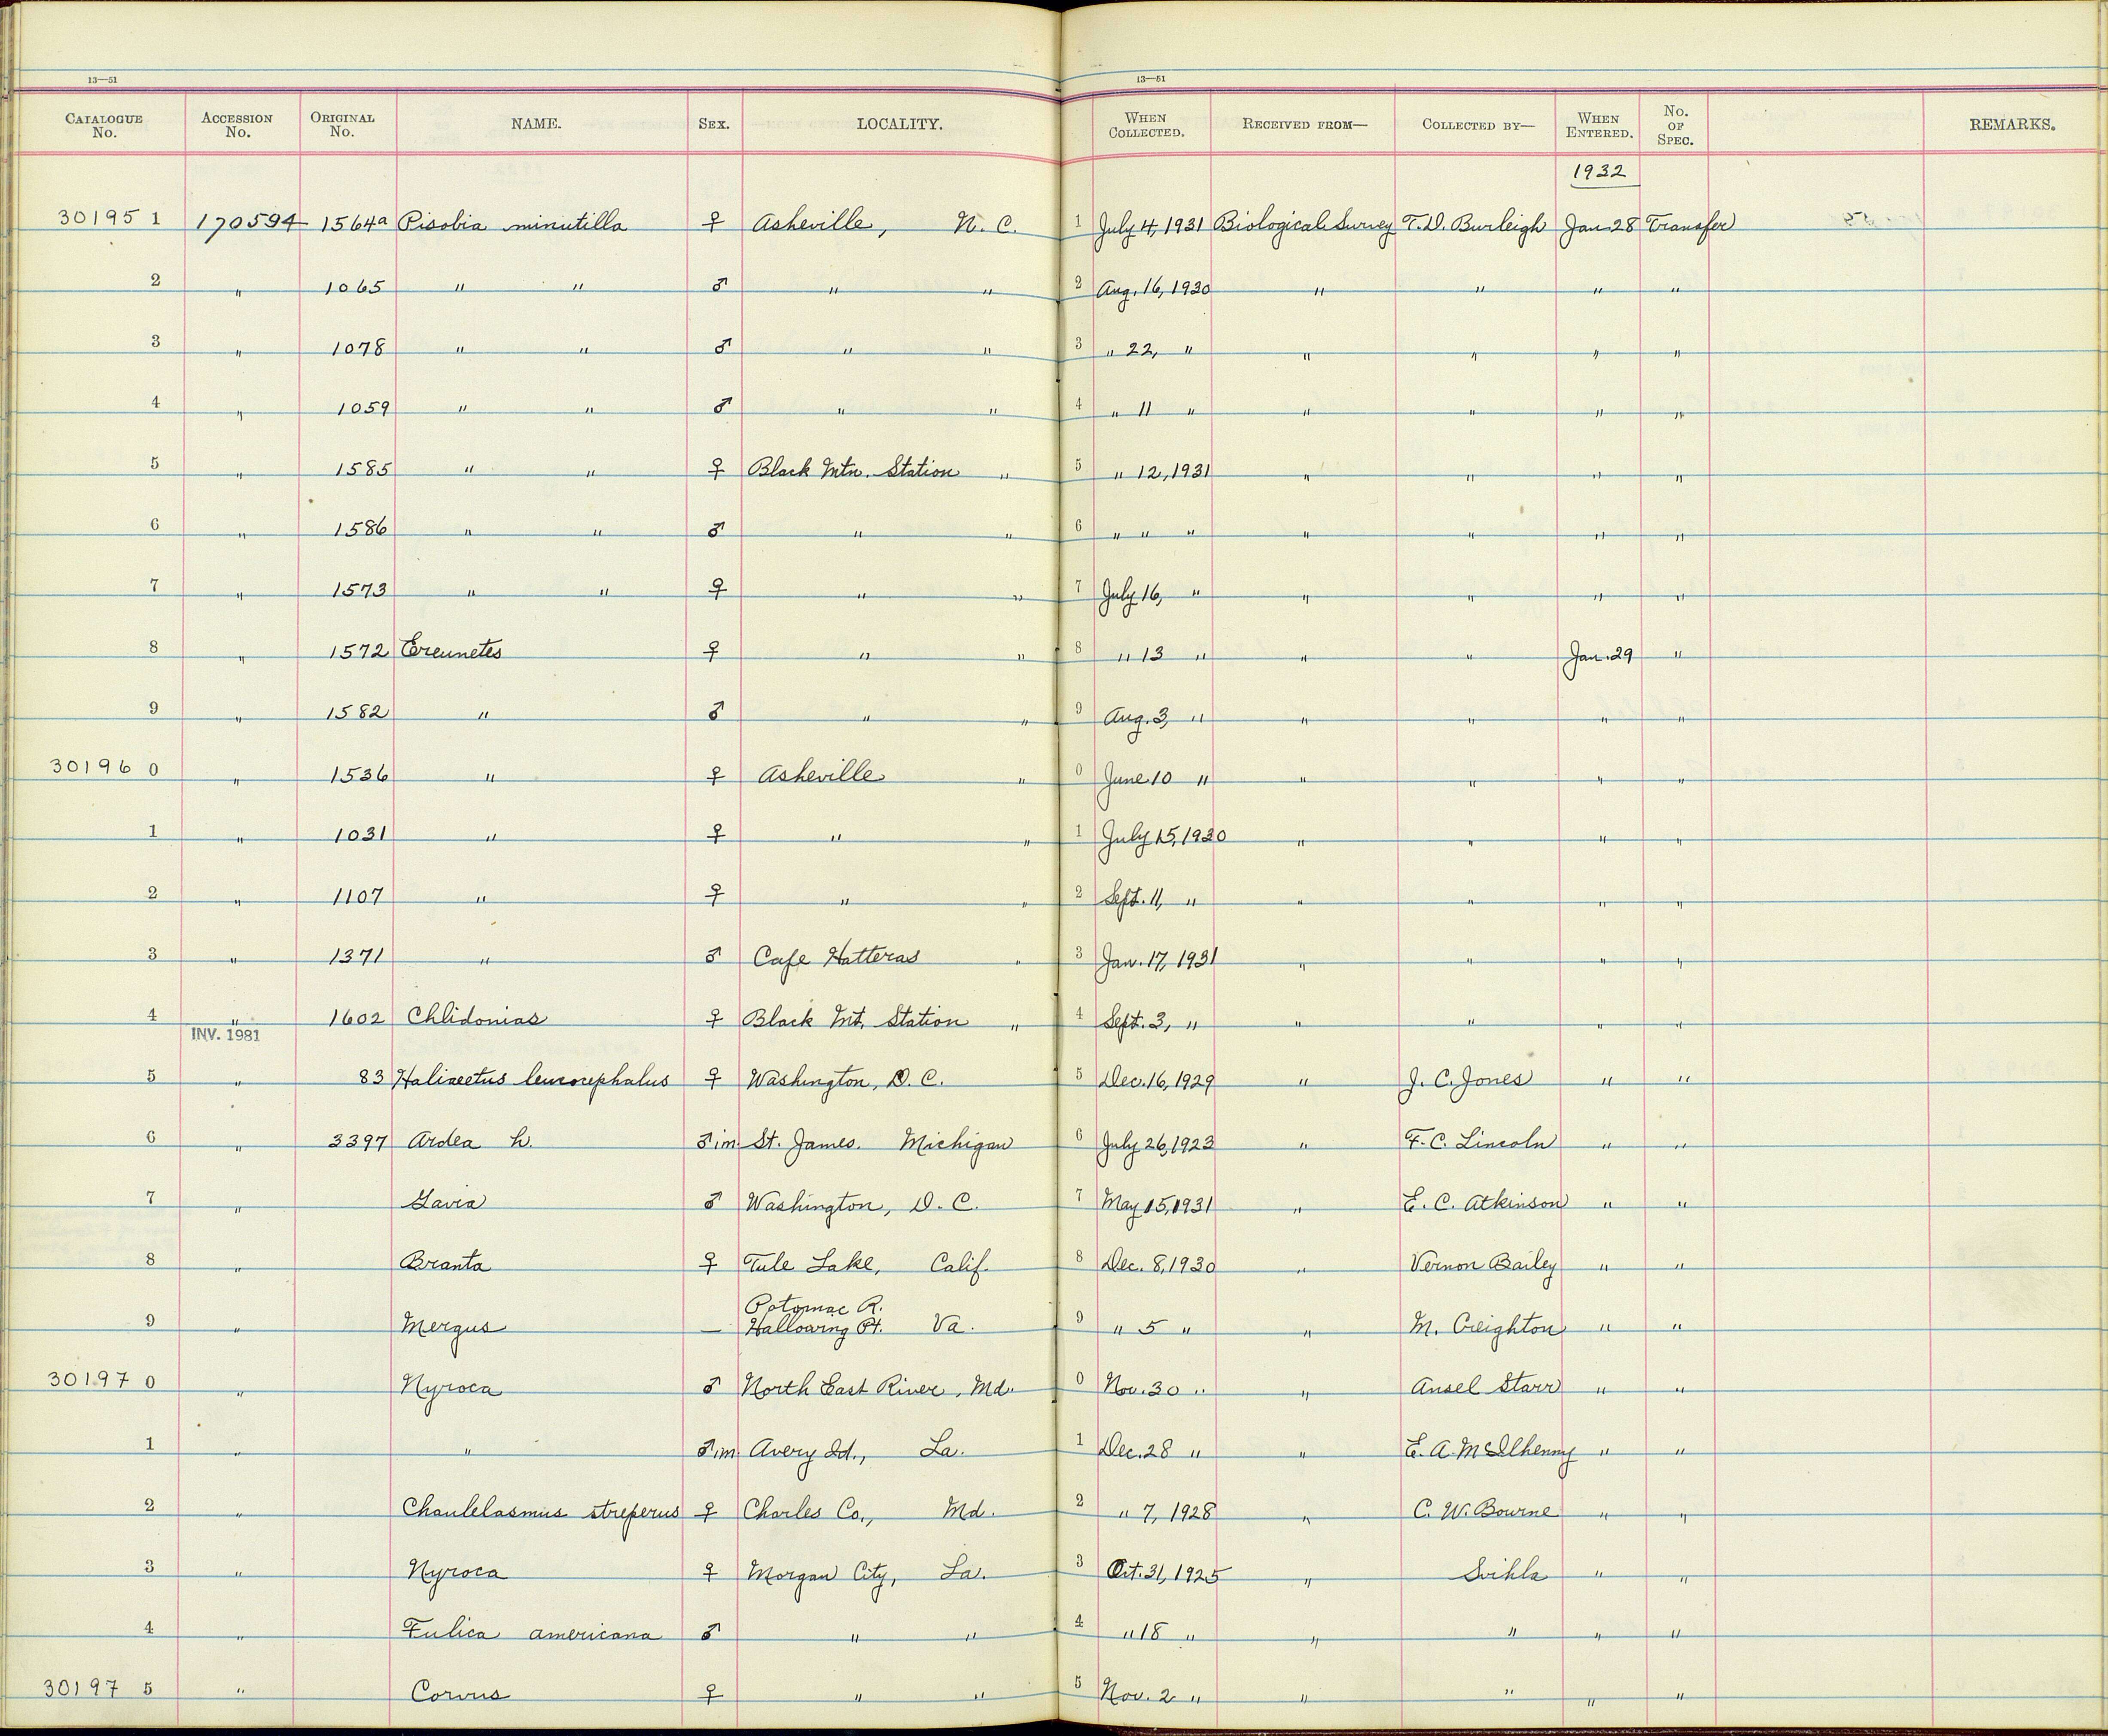 13—51 13—51
CATALOGUE No. ACCESSION No. ORIGINAL No. NAME. SEX. LOCALITY. WHEN COLLECTED. RECEIVED FROM— COLLECTED BY— WHEN ENTERED. No. OF SPEC. REMARKS.
1932
30195 1 170594 1564a Pisobia minutilla ♀ Asheville, N. C. 1 July 4, 1931 Biological Survey T.D. Burleigh Jan. 28 Transfer
2 " 1065 " " ♂ " " 2 Aug. 16, 1930 " " " "
3 " 1078 " " ♂ " " 3 " 22, " " " " "
4 " 1059 " " ♂ " " 4 " 11 " " " " "
5 " 1585 " " ♀ Black Mtn. Station " 5 " 12, 1931 " " " "
6 " 1586 " " ♂ " " 6 " " " " " " "
7 " 1573 " " ♀ " " 7 July 16, " " " " "
8 " 1572 Ereunetes ♀ " " 8 " 13 " " " Jan. 29 "
9 " 1582 " ♂ " " 9 Aug. 3, " " " " "
30196 0 " 1536 " ♀ Asheville " 0 June 10 " " " " "
1 " 1031 " ♀ " " 1 July 15, 1930 " " " "
2 " 1107 " ♀ " " 2 Sept. 11, " " " " "
3 " 1371 " ♂ Cape Hatteras " 3 Jan. 17, 1931 " " " "
4 " 1602 Chlidonias ♀ Black Mt. Station " 4 Sept. 3, " " " " "
INV. 1981
5 " 83 Haliaeetus leucocephalus ♀ Washington, D. C. 5 Dec. 16, 1929 " J. C. Jones " "
6 " 3397 Ardea h. ♂ im. St. James. Michigan 6 July 26, 1923 " F. C. Lincoln " "
7 " Gavia ♂ Washington, D. C. 7 May 15, 1931 " E. C. Atkinson " "
8 " Branta ♀ Tule Lake, Calif. 8 Dec. 8, 1930 " Vernon Bailey " "
Potomac R.
9 " Mergus — Hallowing Pt. Va. 9 " 5 " " M. Creighton " "
30197 0 " Nyroca ♂ North East River, Md. 0 Nov. 30 " " Ansel Starr " "
1 " " ♂ im. Avery Id., La. 1 Dec. 28 " " E. A. McIlhenny " "
2 " Chaulelasmus streperus ♀ Charles Co., Md. 2 " 7, 1928 " C. W. Bourne " "
3 " Nyroca ♀ Morgan City, La. 3 Oct. 31, 1925 " Svihla " "
4 " Fulica americana ♂ " " 4 " 18 " " " " "
30197 5 " Corvus ♀ " " 5 Nov. 2 " " " " "